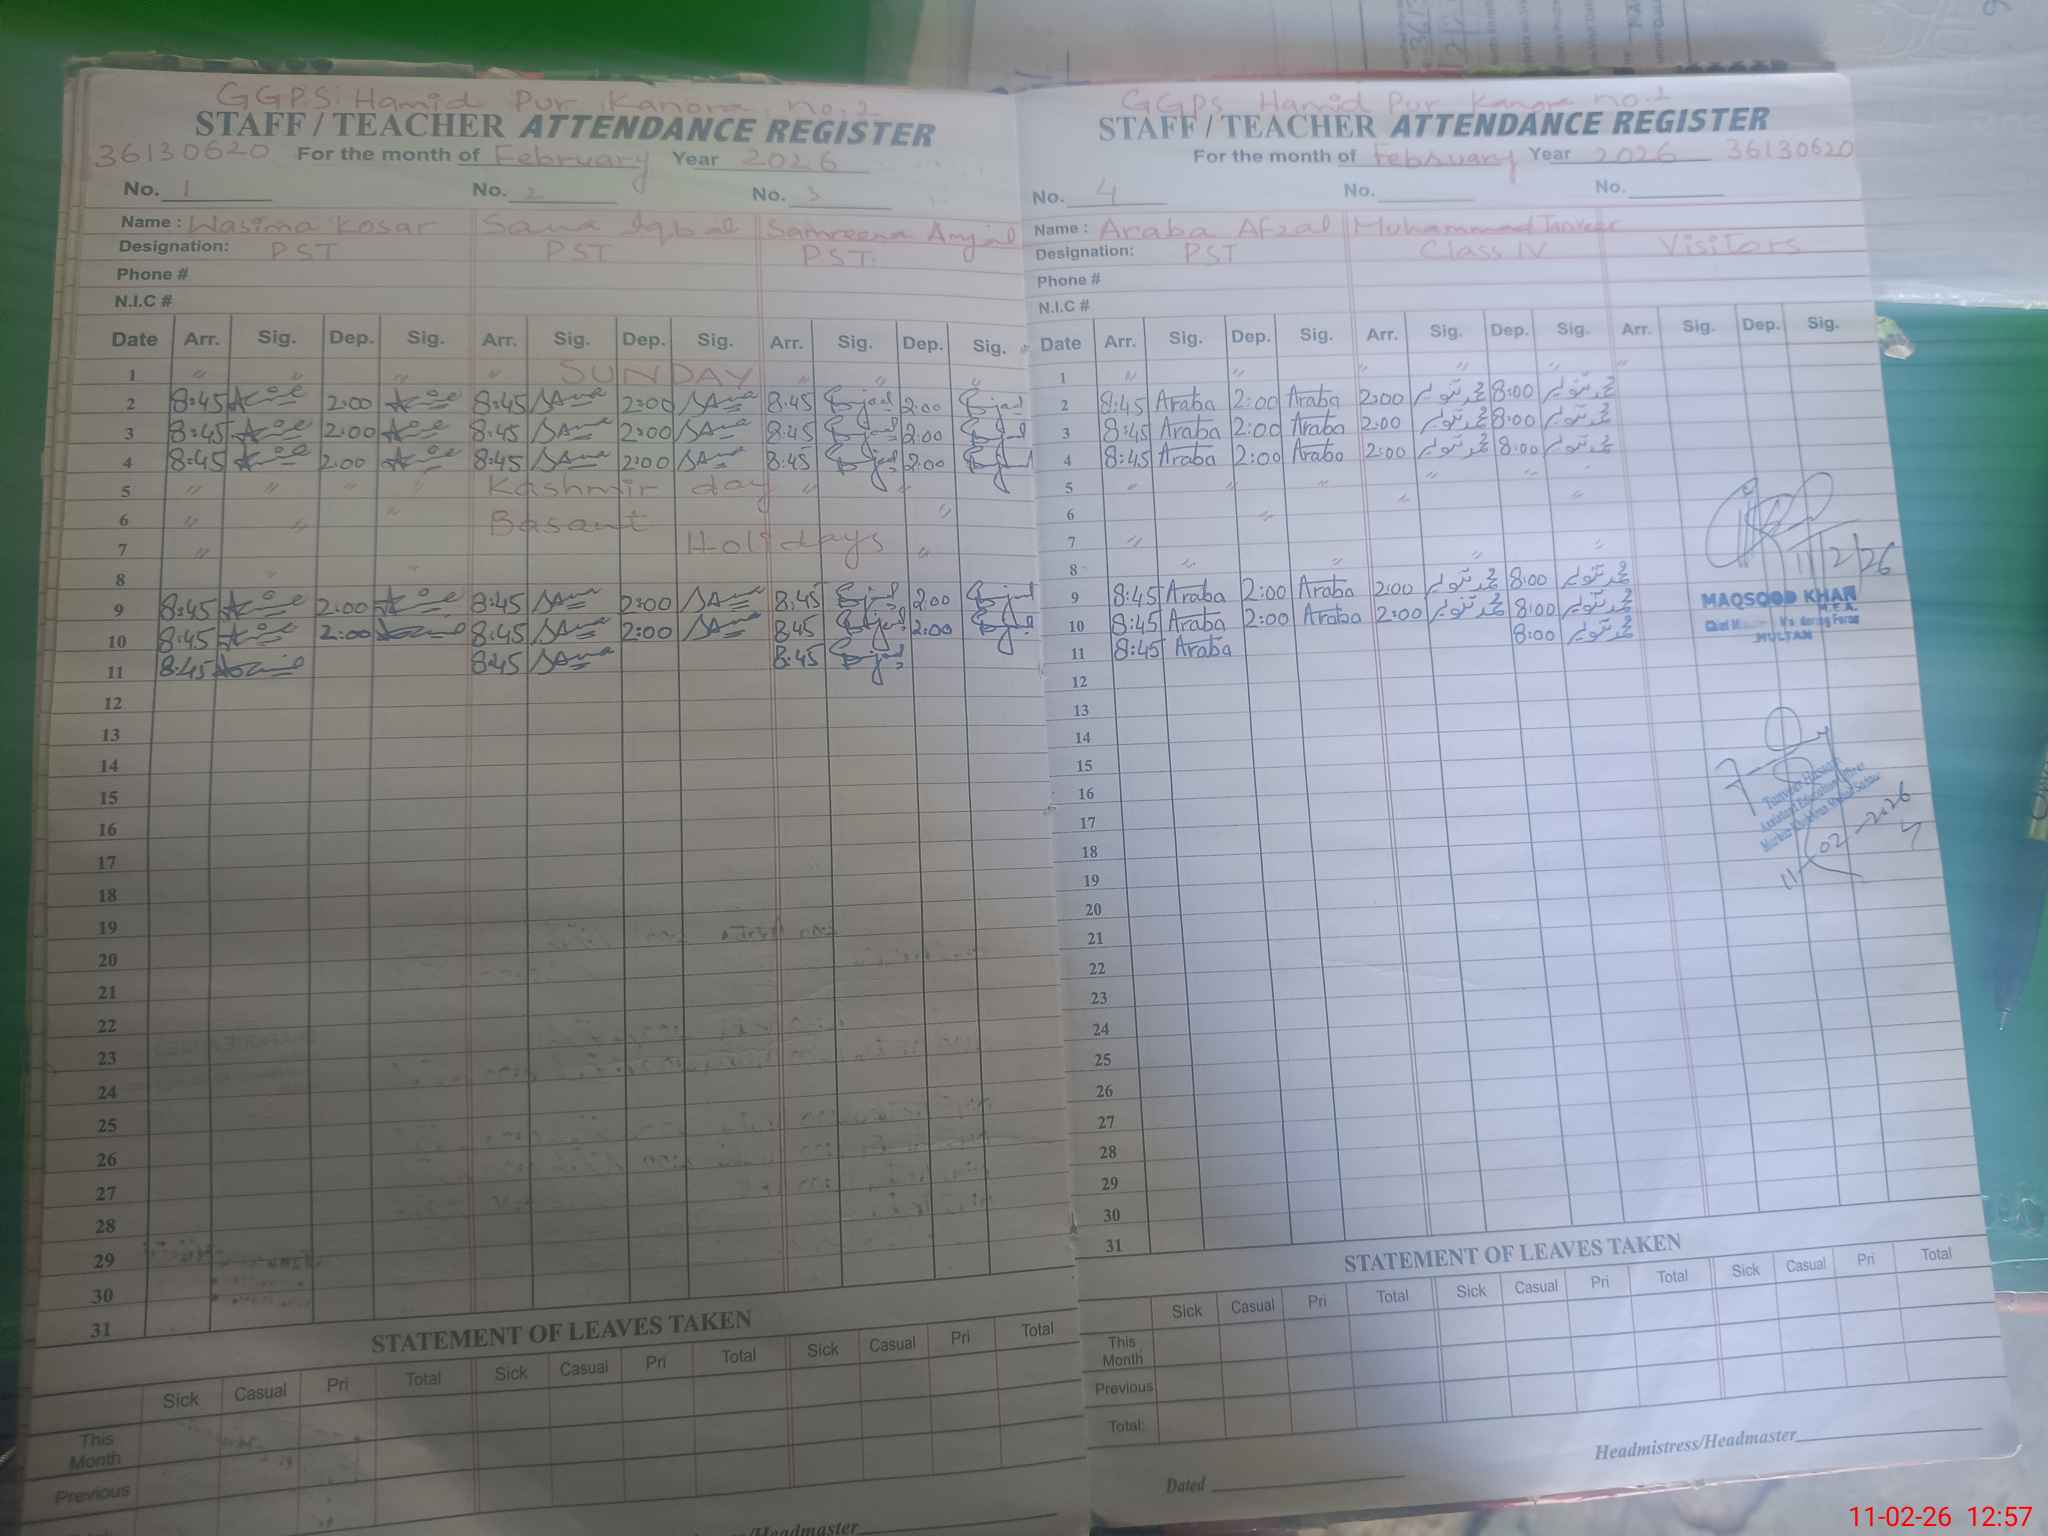 GGPS Hamid Pur Kanora no.2
STAFF / TEACHER ATTENDANCE REGISTER
36130620 For the month of February Year 2026
No. 1 No. 2 No. 3
Name : Wasima Kosar Sana Iqbal Samreena Amjad
Designation: PST PST PST
Phone #
N.I.C #
Date Arr. Sig. Dep. Sig. Arr. Sig. Dep. Sig. Arr. Sig. Dep. Sig.
1 " " " " SUNDAY " " "
2 8:45 2:00 8:45 Sana 2:00 Sana 8:45 2:00
3 8:45 2:00 8:45 Sana 2:00 Sana 8:45 2:00
4 8:45 2:00 8:45 Sana 2:00 Sana 8:45 2:00
5 " " " " Kashmir day " "
6 " " " Basant "
7 " Holidays "
8
9 8:45 2:00 8:45 Sana 2:00 Sana 8:45 2:00
10 8:45 2:00 8:45 Sana 2:00 Sana 8:45 2:00
11 8:45 8:45 Sana 8:45
12
13
14
15
16
17
18
19
20
21
22
23
24
25
26
27
28
29
30
31
STATEMENT OF LEAVES TAKEN
Sick Casual Pri Total Sick Casual Pri Total Sick Casual Pri Total
This Month
Previous
/Headmaster
GGPS Hamid Pur Kanora no.2
STAFF / TEACHER ATTENDANCE REGISTER
For the month of February Year 2026 36130620
No. 4 No. No.
Name : Araba Afzal Muhammad Tanveer
Designation: PST Class IV Visitors
Phone #
N.I.C #
Date Arr. Sig. Dep. Sig. Arr. Sig. Dep. Sig. Arr. Sig. Dep. Sig.
1 " " " " " "
2 8:45 Araba 2:00 Araba 2:00 محمد تنویر 8:00 محمد تنویر
3 8:45 Araba 2:00 Araba 2:00 محمد تنویر 8:00 محمد تنویر
4 8:45 Araba 2:00 Araba 2:00 محمد تنویر 8:00 محمد تنویر
5 " " " " "
6 " " "
7 " " "
8 " "
9 8:45 Araba 2:00 Araba 2:00 محمد تنویر 8:00 محمد تنویر
10 8:45 Araba 2:00 Araba 2:00 محمد تنویر 8:00 محمد تنویر
11 8:45 Araba 8:00 محمد تنویر
12
13
14
15
16
17
18
19
20
21
22
23
24
25
26
27
28
29
30
31
11/2/26
MAQSOOD KHAN
MULTAN
11-02-2026
STATEMENT OF LEAVES TAKEN
Sick Casual Pri Total Sick Casual Pri Total Sick Casual Pri Total
This Month
Previous
Total:
Headmistress/Headmaster
Dated
11-02-26 12:57